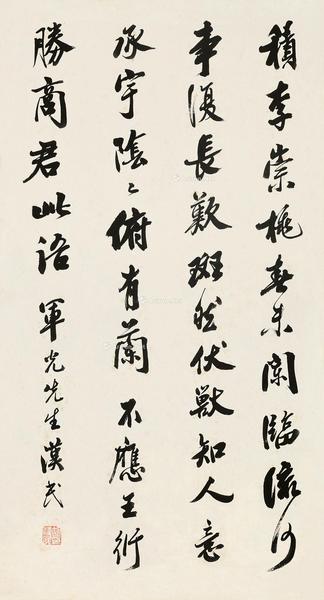 積李崇桃春未闌臨流何
事復長歎斑然伏獸知人意
承宇陰々俯有蘭不應王術
勝商君此語 軍光先生 漢民